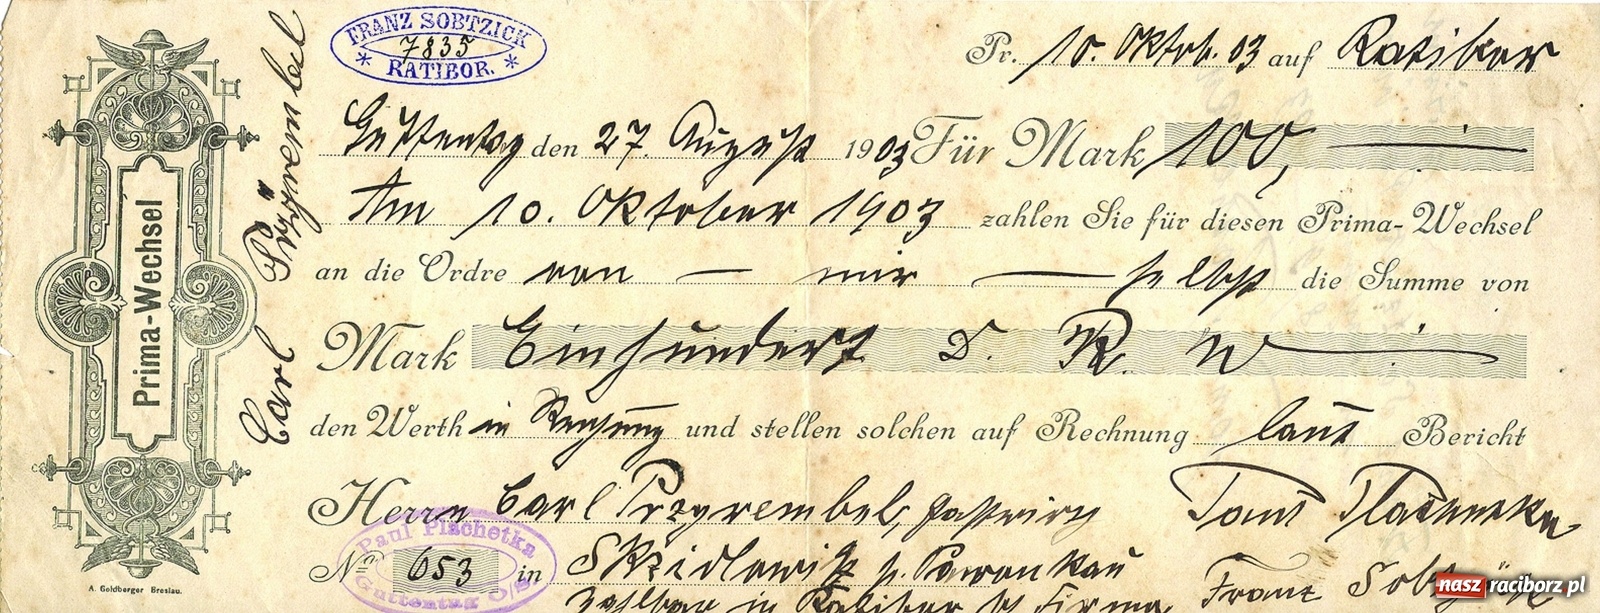 FRANZ SOBTZICK
7835
* RATIBOR. *
Pr. 10. Oktob. 03 auf Ratibor
Guttentag den 27. August 1903 Für Mark 100,
Am 10. Oktober 1903 zahlen Sie für diesen Prima-Wechsel
an die Ordre von — mir — selbst die Summe von
Mark Einhundert D. R. W
den Werth in Rechnung und stellen solchen auf Rechnung laut Bericht
Herrn Carl Przyrembel, Gastwirth
Paul Plachetka
No 653 in Skzidlowitz p. Pawonkau
Guttentag O/S.
zahlbar in Ratibor b/ Firma
Franz Sobtzick
Paul Plachetka
Carl Przyrembel
Prima-Wechsel
A. Goldberger Breslau.
naszraciborz.pl